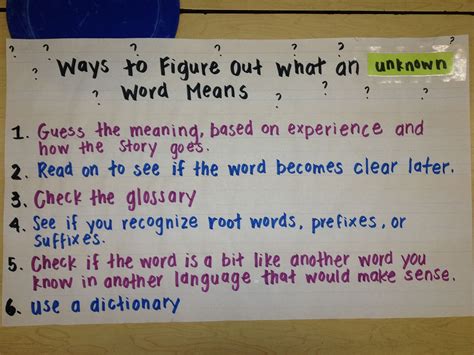 Ways to Figure Out what an unknown
Word Means
1. Guess the meaning, based on experience and
how the Story goes.
2. Read on to see if the word becomes clear later.
3. Check the glossary
4. See if you recognize root words, prefixes, or
suffixes.
5. Check if the word is a bit like another word you
know in another language that would make sense.
6. use a dictionary